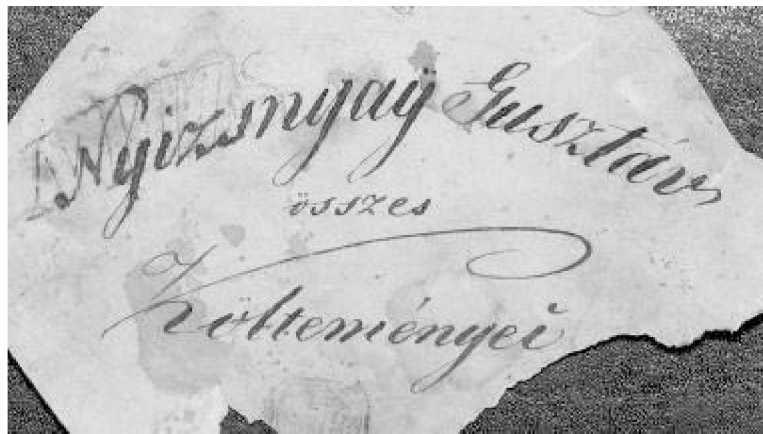 Nyizsnyaÿ Gusztáv
összes
Költeményei